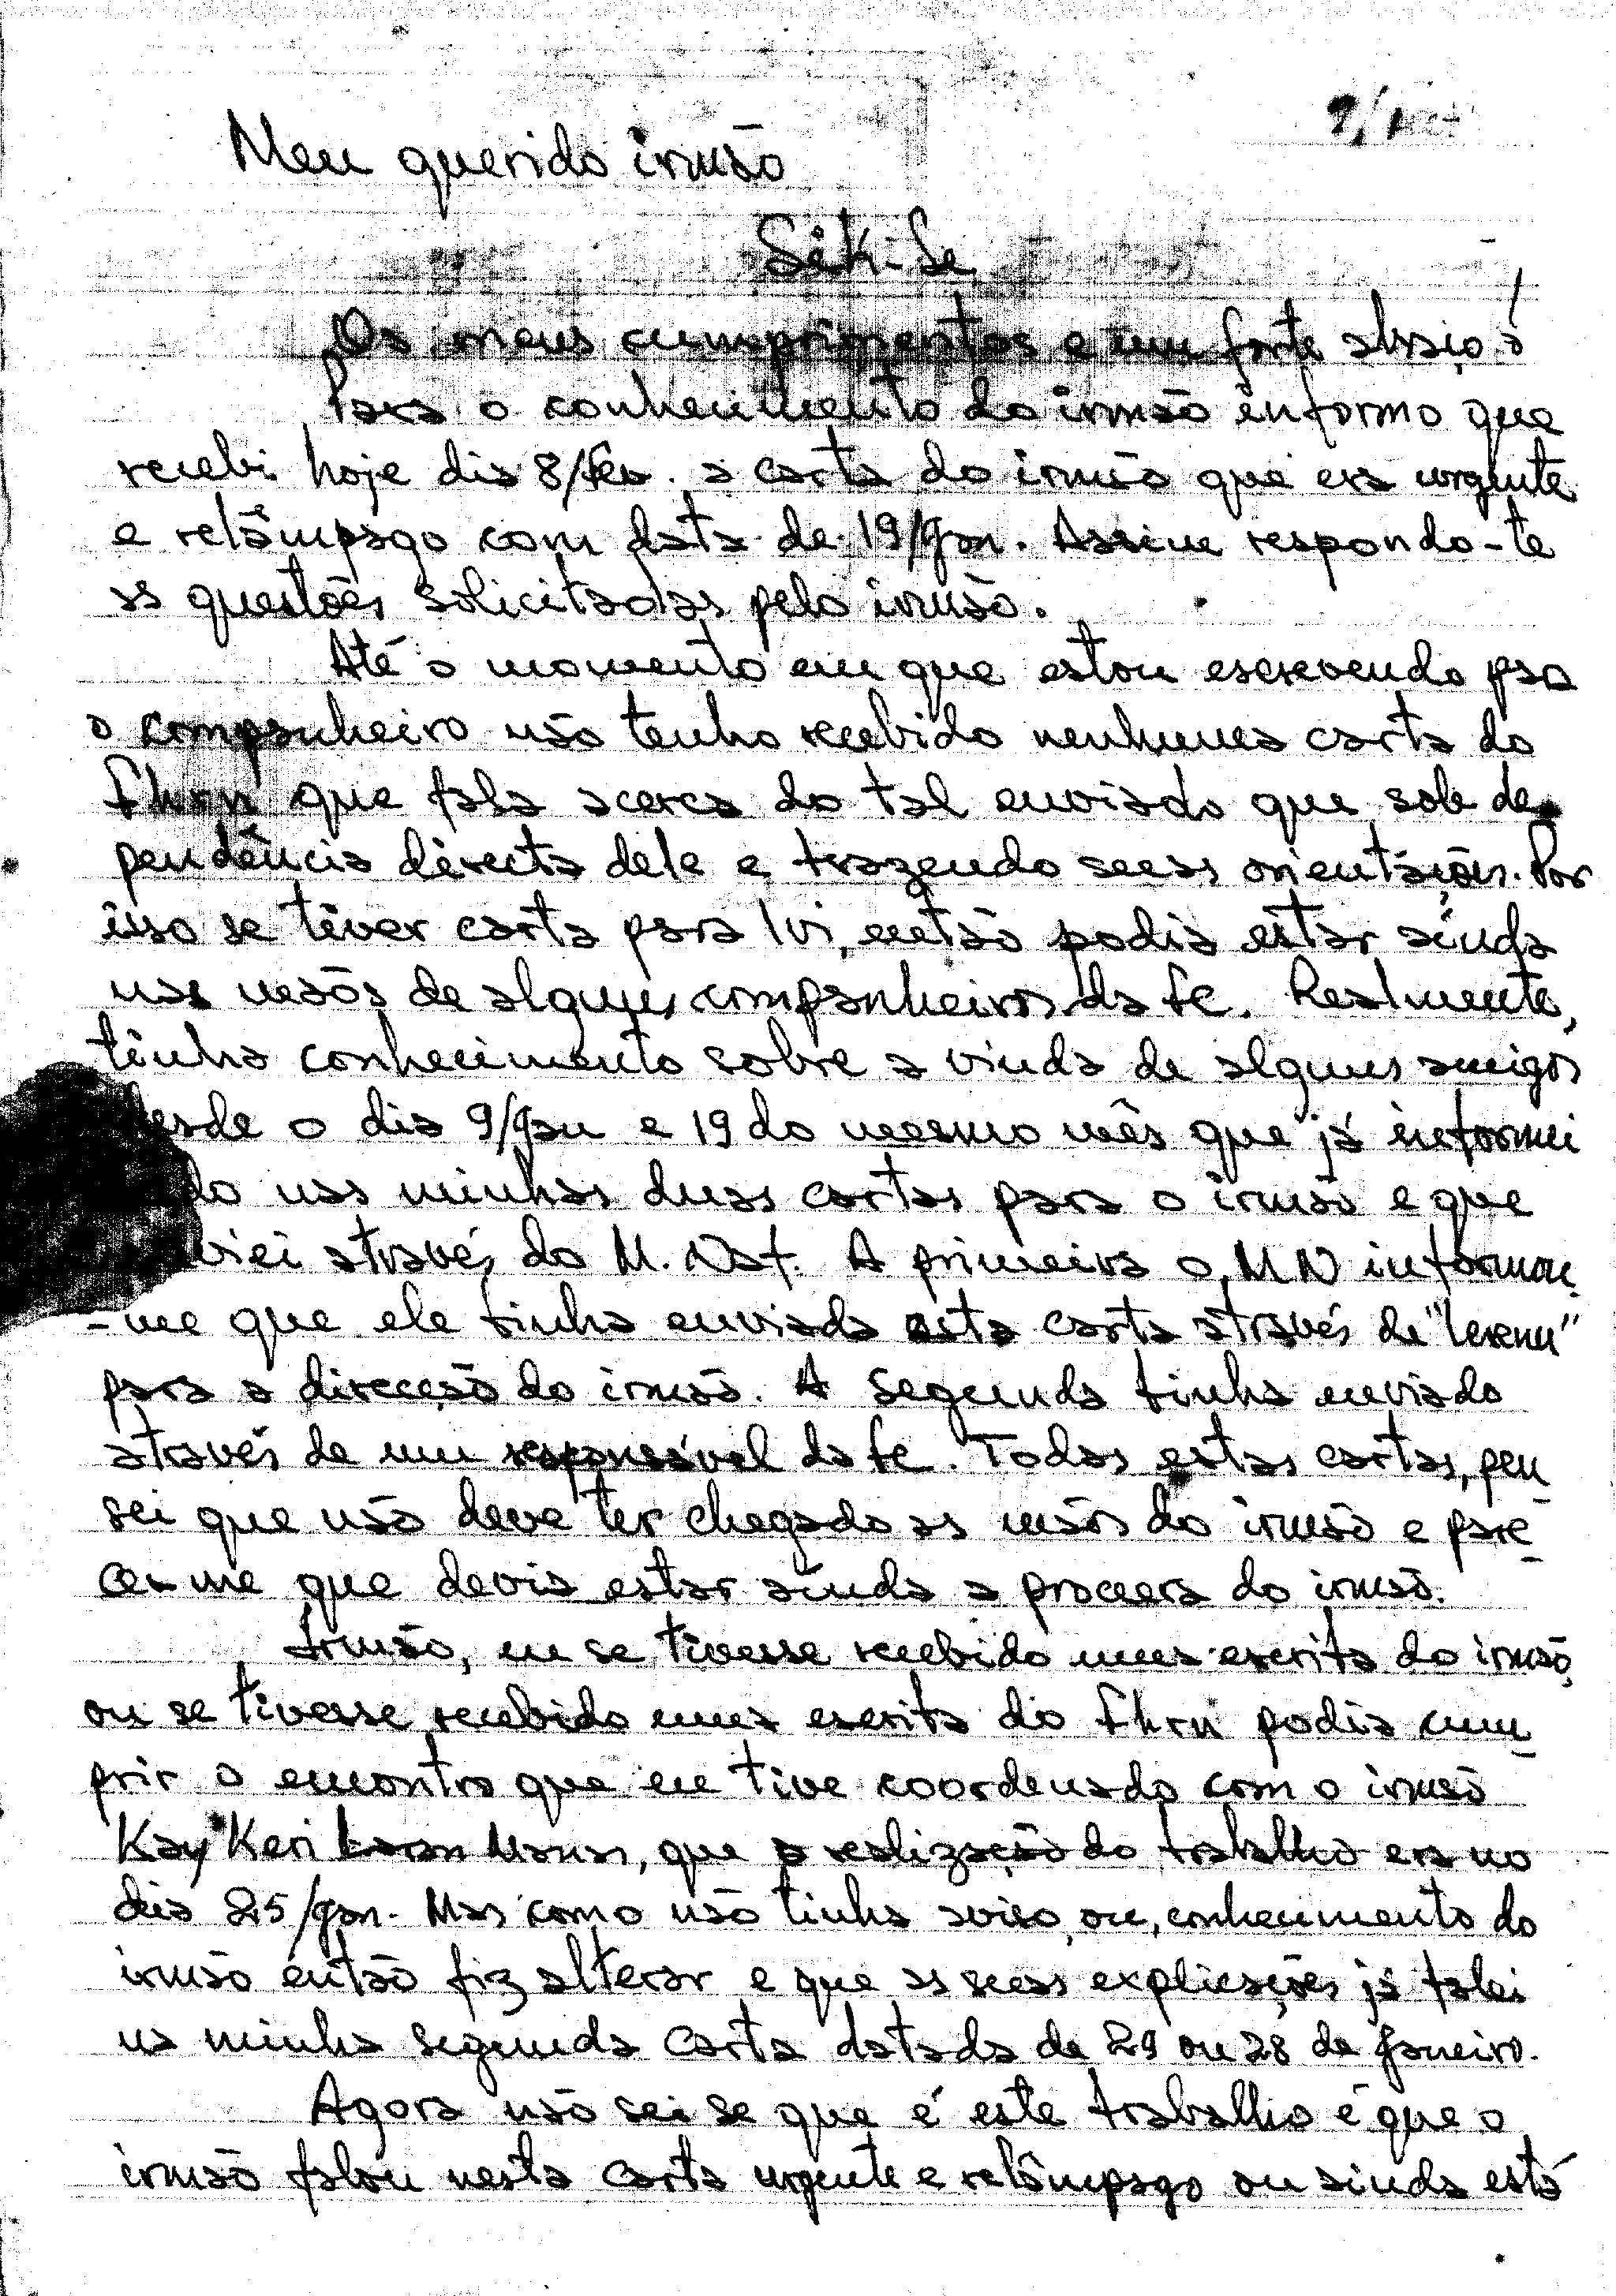 Meu querido irmão
Séki-Se
Os meus cumprimentos e um forte abraço!
Para o conhecimento do irmão informo que
recebi hoje dia 8/Fev. a carta do irmão que era urgente
e relâmpago com data de 19/Jan. Assim respondo-te
as questões solicitadas pelo irmão.
Até o momento em que estou escrevendo pra
o companheiro não tenho recebido nenhuma carta do
que fala acerca do tal enviado que sob de
pendência directa dele e trazendo suas orientações. Por
isso se tiver carta para , então podia estar ainda
nas mãos de algum companheiros da fc. Realmente,
tinha conhecimento sobre a vinda de alguns amigos
desde o dia 9/Jan e 19 do mesmo mês que já informei
do nas minhas duas cartas para o irmão e que
viei através do M. Nat. A primeira o MN informou
-me que ele tinha enviado esta carta através de "Lerenu"
para a direcção do irmão. A segunda tinha enviado
através de um responsável da fc. Todas estas cartas, pen
sei que não deve ter chegado as mãos do irmão e pare
ce-me que devia estar ainda a procura do irmão.
Irmão, eu se tivesse recebido uma escrita do irmão,
ou se tivesse recebido uma escrita do podia cum
prir o encontro que eu tive coordenado com o irmão
Kay Keri , que a realização do trabalho era no
dia 25/Jan. Mas como não tinha aviso, ou, conhecimento do
irmão então fiz alterar e que as suas explicações já falei
na minha segunda carta datada de 29 ou 28 de Janeiro.
Agora não sei se que é este trabalho é que o
irmão falou nesta carta urgente e relâmpago ou ainda está